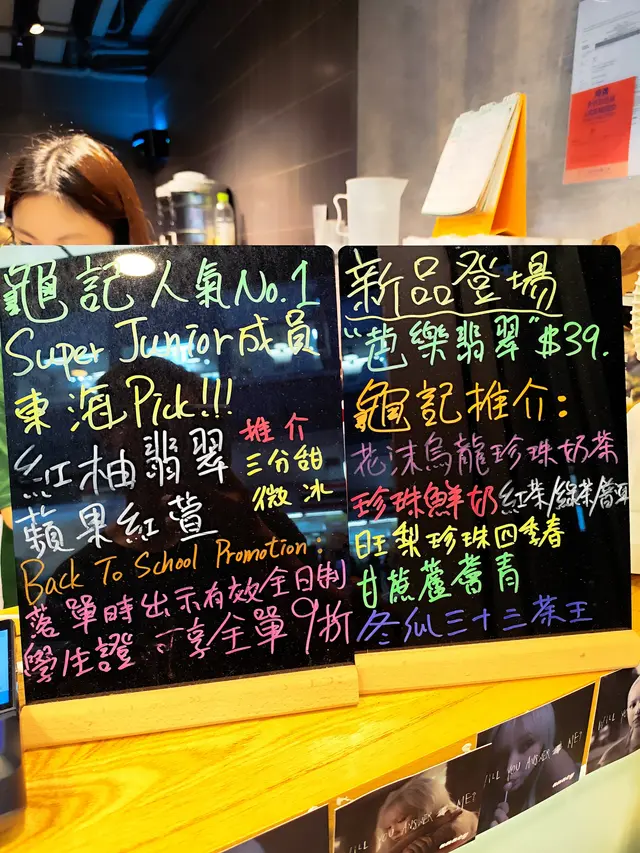 龜記人氣No.1
Super Junior成員
東海Pick!!!
紅柚翡翠
蘋果紅萱
推介
三分甜
微冰
Back To School Promotion:
落單時出示有效全日制
學生證 可享全單9折
新品登場
"芭樂翡翠"$39.
龜記推介:
花沫烏龍珍珠奶茶
珍珠鮮奶紅茶/綠茶/蕎麥
旺梨珍珠四季春
甘蔗蘆薈青
冬瓜三十三茶王
WILL YOU ANSWER ME?
WILL YOU ANSWER ME?
WILL YOU ANSWER ME?